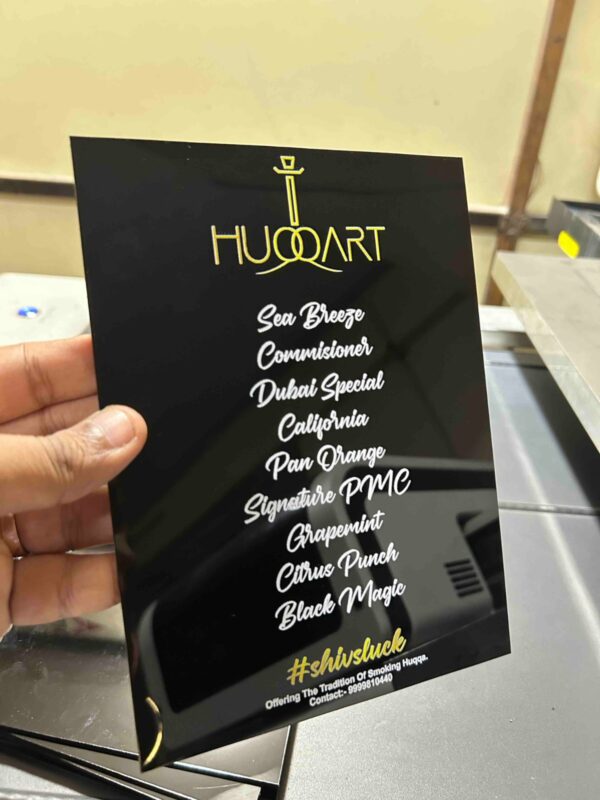 HUQQART
Sea Breeze
Commisioner
Dubai Special
California
Pan Orange
Signature PMC
Grapemint
Citrus Punch
Black Magic
#shivsluck
Offering The Tradition Of Smoking Huqqa.
Contact:- 9999810440